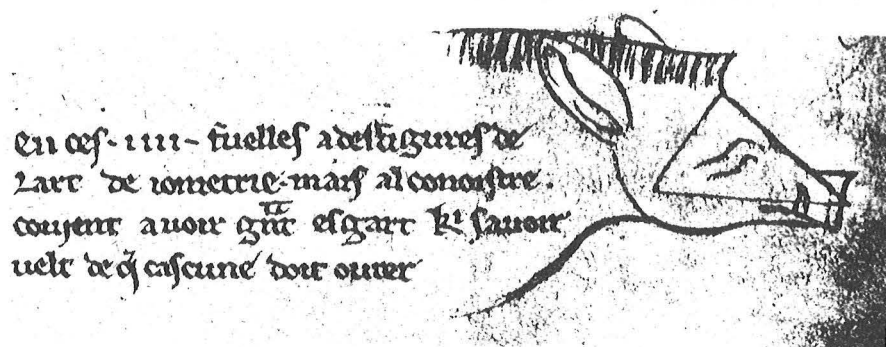 en ces · iiii · fuelles a des figures de
lart de iometrie · mais al conoistre ·
couient auoir grāt esgart ki sauoir
uelt de q̄ cascune doit ourer